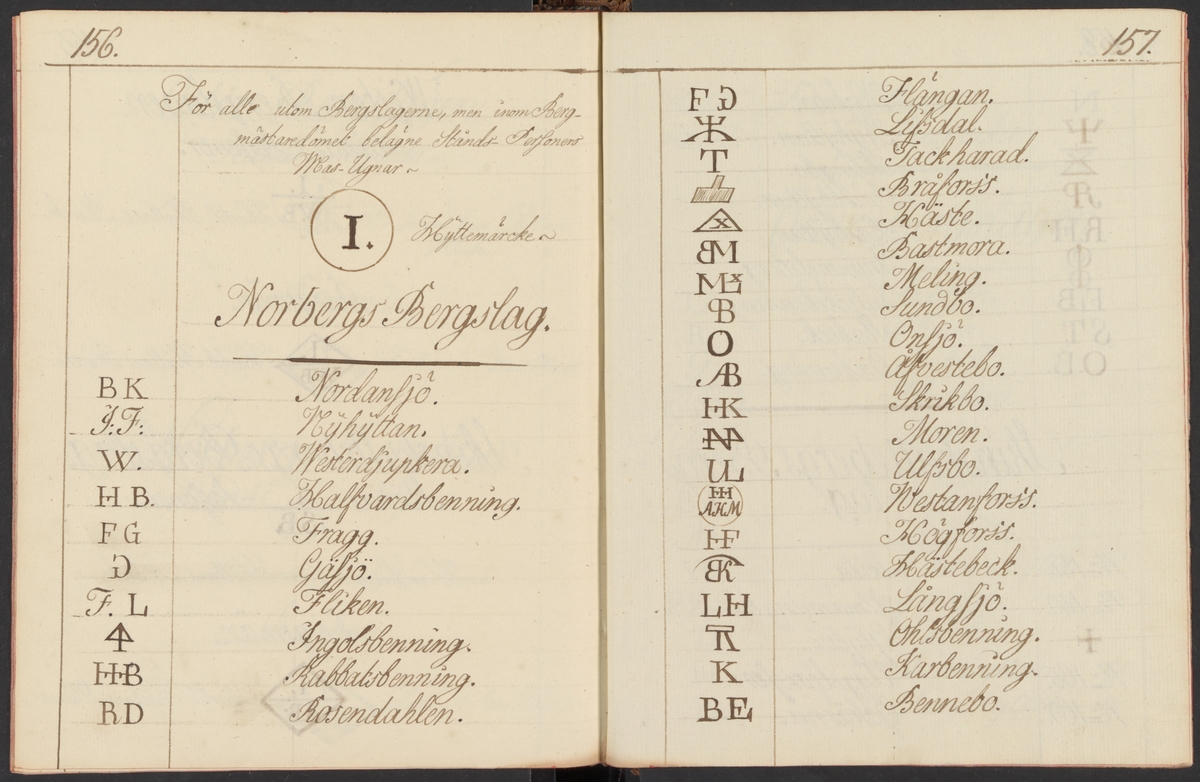 156.
För alle utom Bergslagerne, men inom Berg-
mästaredömet belägne Stånds-Personers
Mas-Ugnar~
I. Hyttemärcke~
Norbergs Bergslag.
B K Nordansjö.
J: F: Nÿhÿttan.
W. Westerdjupkera.
H B. Halfvardsbenning.
F G Fragg.
G Gäsjö.
F. L Fliken.
Ingolsbenning.
HB Kabbatsbenning.
R D Rosendahlen.
157.
F G Flängan.
Lissdal.
T Tackharad.
Bråforss.
X Häste.
BM Bastmora.
M Meling.
B Sundbo.
O Onsjö.
AB Åfvestebo.
HK Skrikbo.
Moren.
UL Ulfsbo.
HH AHM Westanforss.
HF Högforss.
BK Hästebeck.
LH Långsjö.
Ohlsbenning.
K Karbenning.
BE Bennebo.